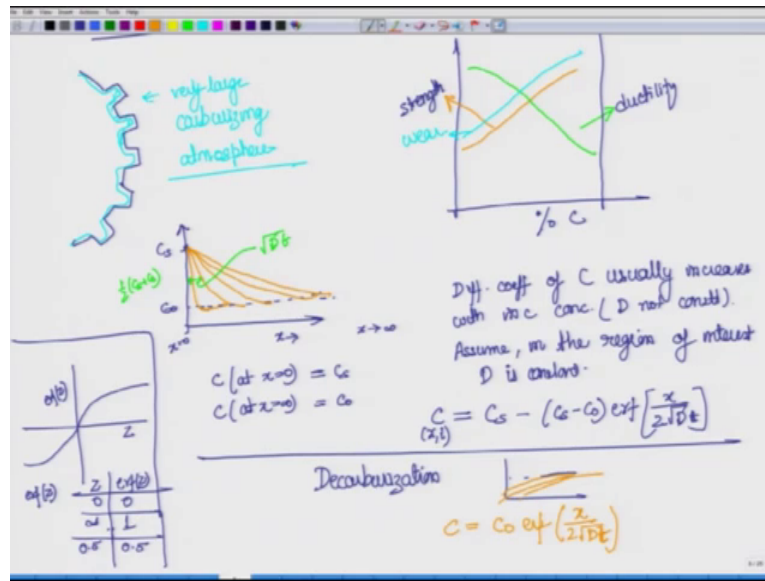 ← very large
carburizing
atmosphere
strength
wear
ductility
% C
Cs
½(Cs+C0)
C0
√Dt
x=0
x→
x→∞
C (at x=0) = Cs
C (at x=∞) = C0
Diff. coeff of C usually increases
with inc conc (D not constt).
Assume, in the region of interest
D is constant.
C = Cs - (Cs-C0) erf [x/2√Dt]
(x,t)
erf(z)
Z
erf(z)
Z erf(z)
0 0
α 1
0.5 0.5
Decarburization
C = C0 erf (x/2√Dt)